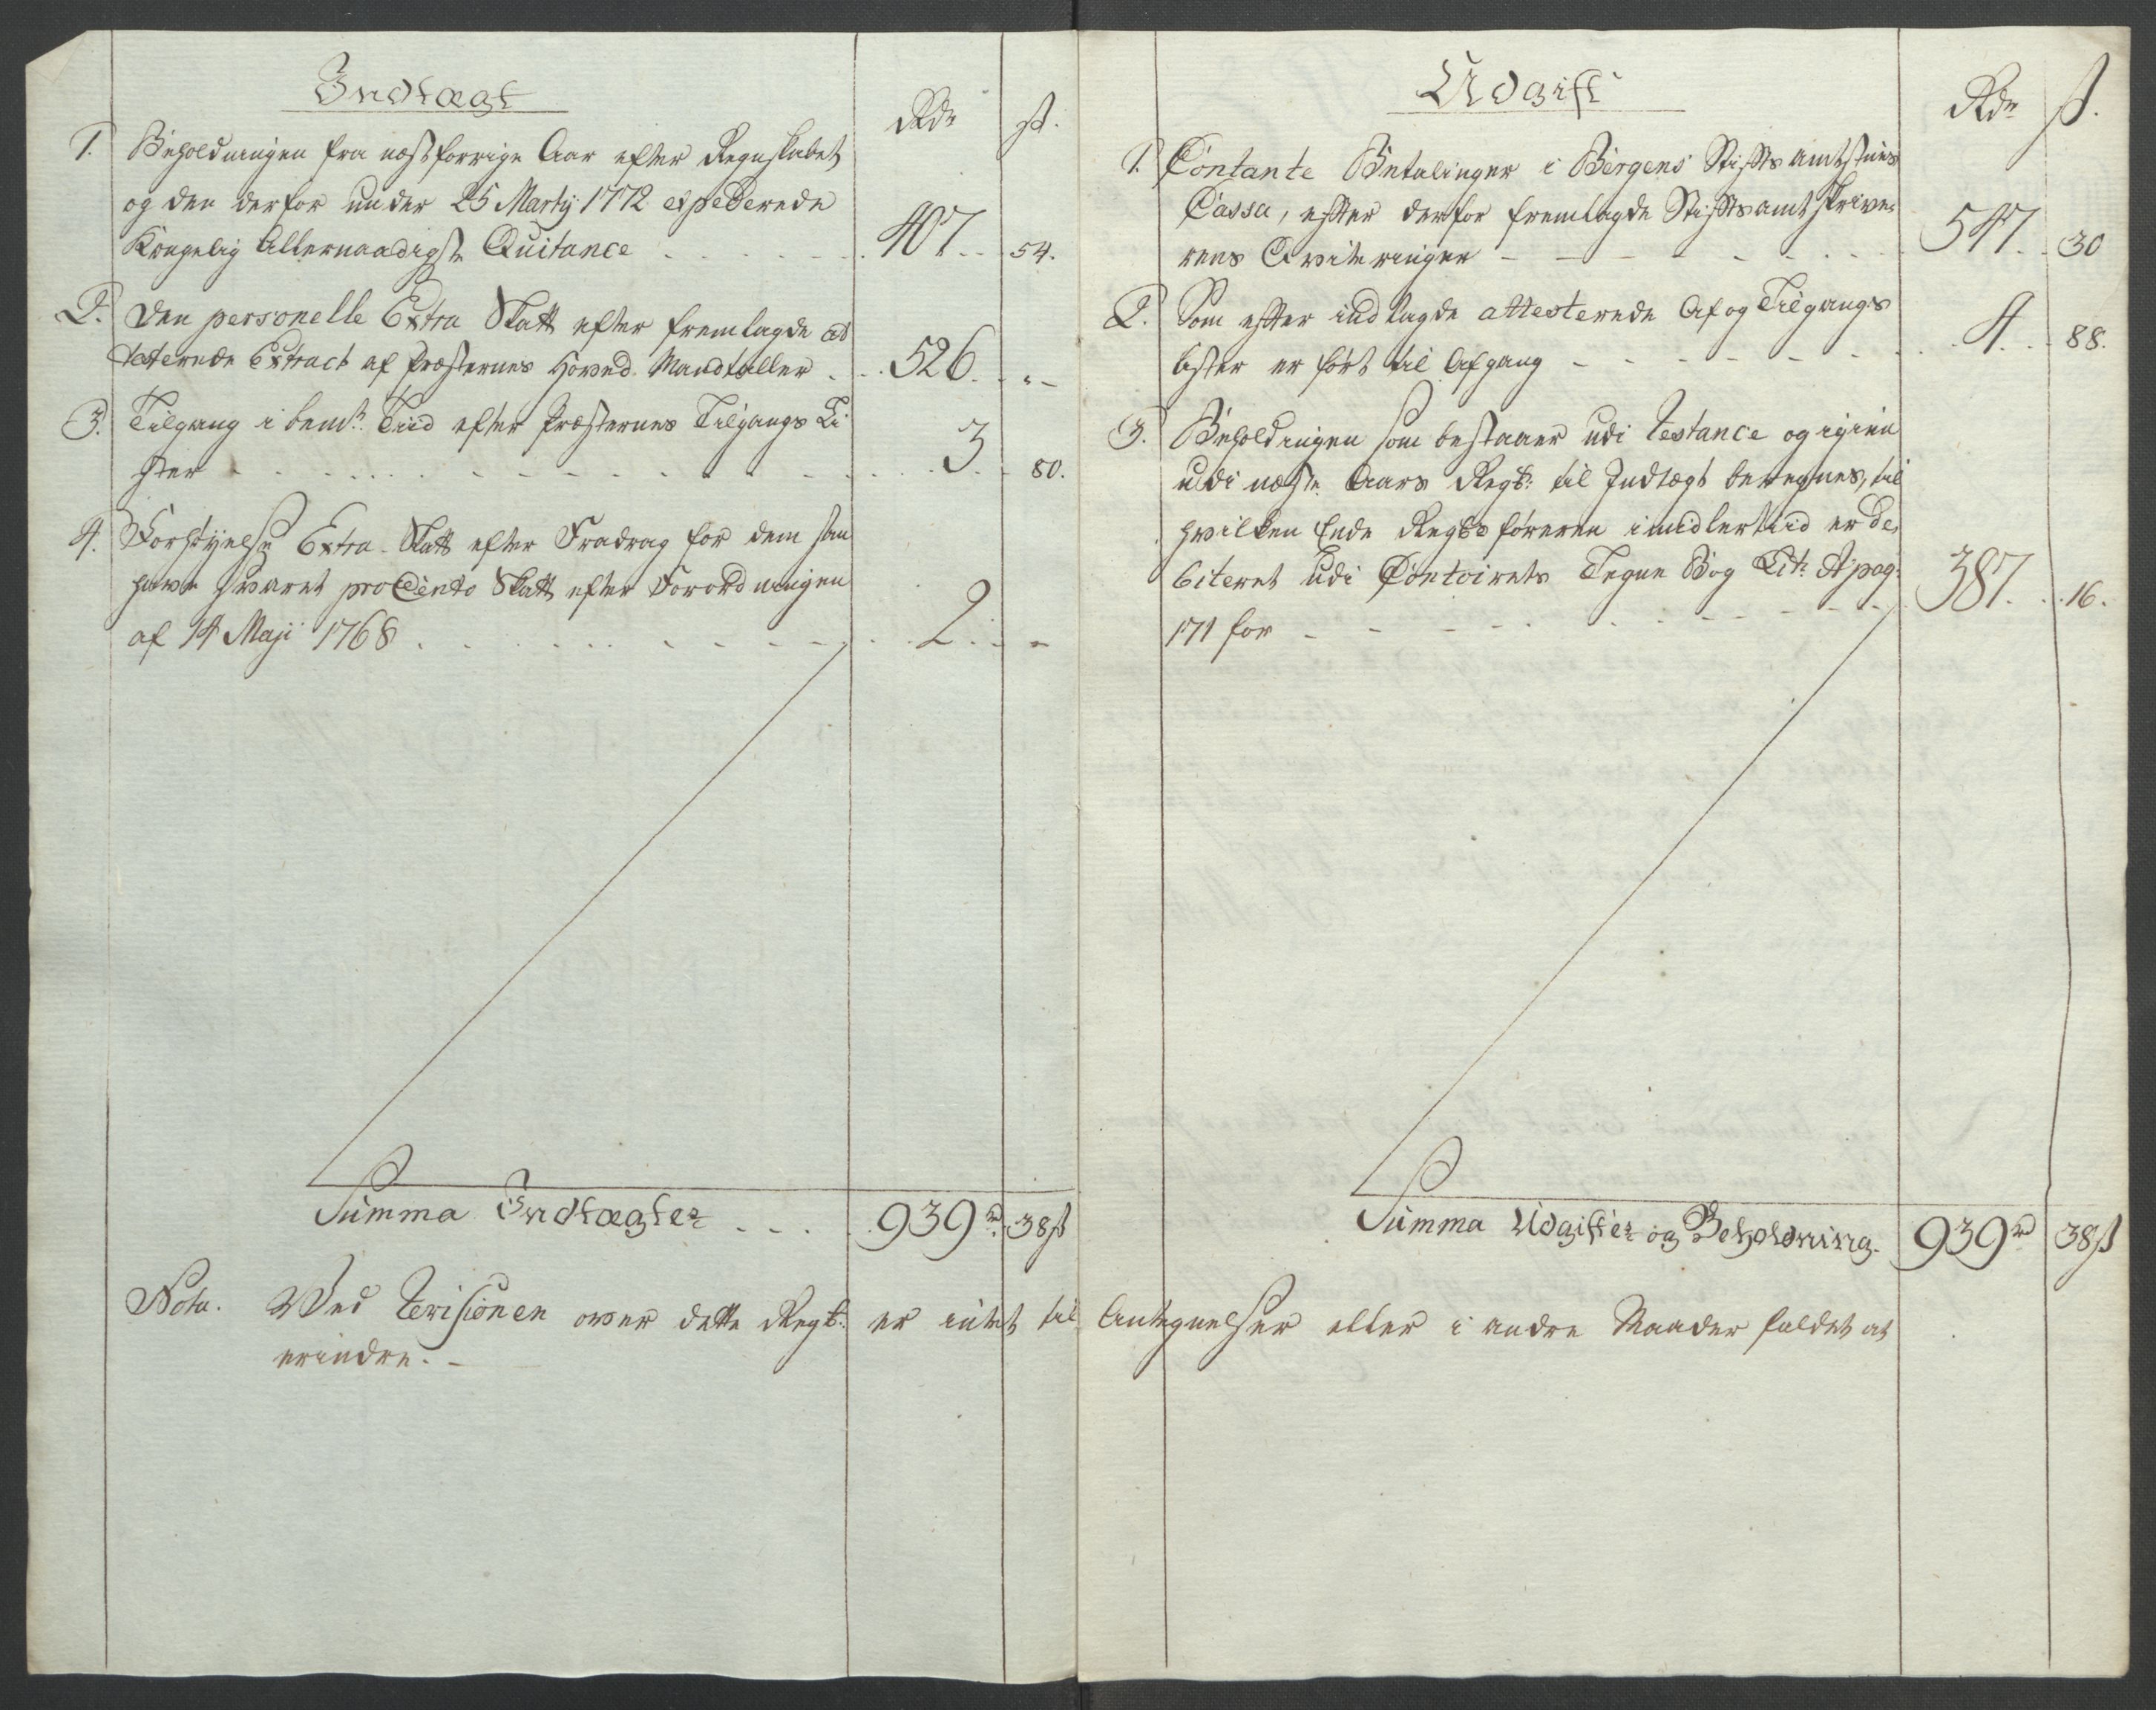 Indtægt
Rdr ß.
1. Beholdningen fra næstforrige Aar efter Regnskabet
og den derfor under 25 Martij 1772 expederede
Kongelig Allernaadigste Quitance . . . . . 407 . . 54.
2. Den personelle Extra Skatt efter fremlagde at
testerede Extract af Præsternes Hoved Mandtaller . . 526 . „ -
3. Tilgang i bemte Tiid efter Præsternes Tilgangs Li
ster - . . . . . - - - - - - . . 3. - 80.
4. Extra Skatt efter Fradrag for dem som
have svaret pro Cento Skatt efter Forordningen
af 14 Maji 1768 . . . . . . - - - - . . 2 . - -
Summa Indtægter . . . . 939 rd 38 ß
Udgift
Rdr ß.
1. Contante Betalinger i Bergens Stiftsamtstues
Cassa, efter derfor fremlagde Stiftsamtskrive,
rens Qviteringer - - - - - - . . . 547. . 30
2. Som efter indlagde attesterede Af og Tilgangs
lister er ført til Afgang - - - - - - . . 4. . - 88.
3. Beholdningen som bestaaer udi Restance og igien
udi næste Aars Regsk: til Indtægt beregnes, til
hvilken Ende Regsk:s føreren imidlertiid er de,
biteret udi Contoirets Tegne Bog Litr: A pag:
171 for - - - - . . . - - - - 387. . . 16.
Summa Udgifter og Beholdning. 939 rd 38 ß
Nota. Ved Revisionen over dette Regsk: er intet til Antegnelser eller i andre Maader faldet at
erindre. -